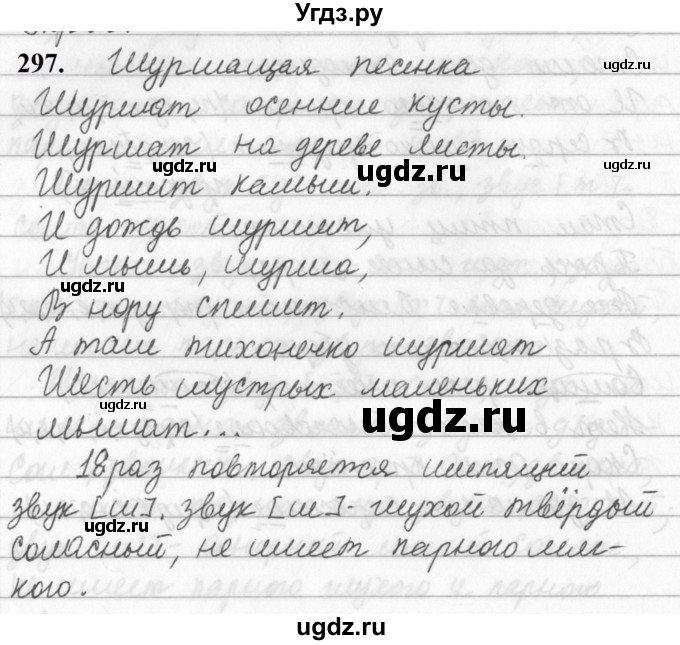 Угдз.ру
297. Шуршащая песенка
Шуршат осенние кусты.
Шуршат на дереве листы.
Шуршит камыш.
И дождь шуршит,
И мышь, шурша,
В нору спешит.
А там тихонечко шуршат
Шесть шустрых маленьких
мышат...
18 раз повторяется шипящий
звук [ш]. звук [ш] - глухой твёрдый
согласный, не имеет парного мяг-
кого.
ugdz.ru
ugdz.ru
ugdz.ru
ugdz.ru
ugdz.ru
ugdz.ru
ugdz.ru
ugdz.ru
ugdz.ru
ugdz.ru